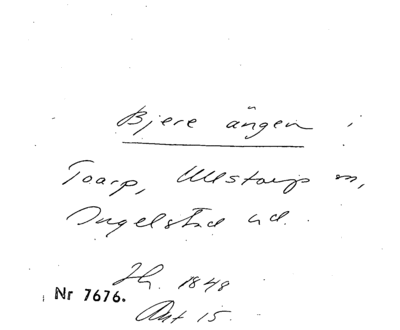 Bjere ängen i
Toarp, Ullstorp sn,
Ingelstad hd.
Jh. 1848
Nr 7676.
Akt 15.